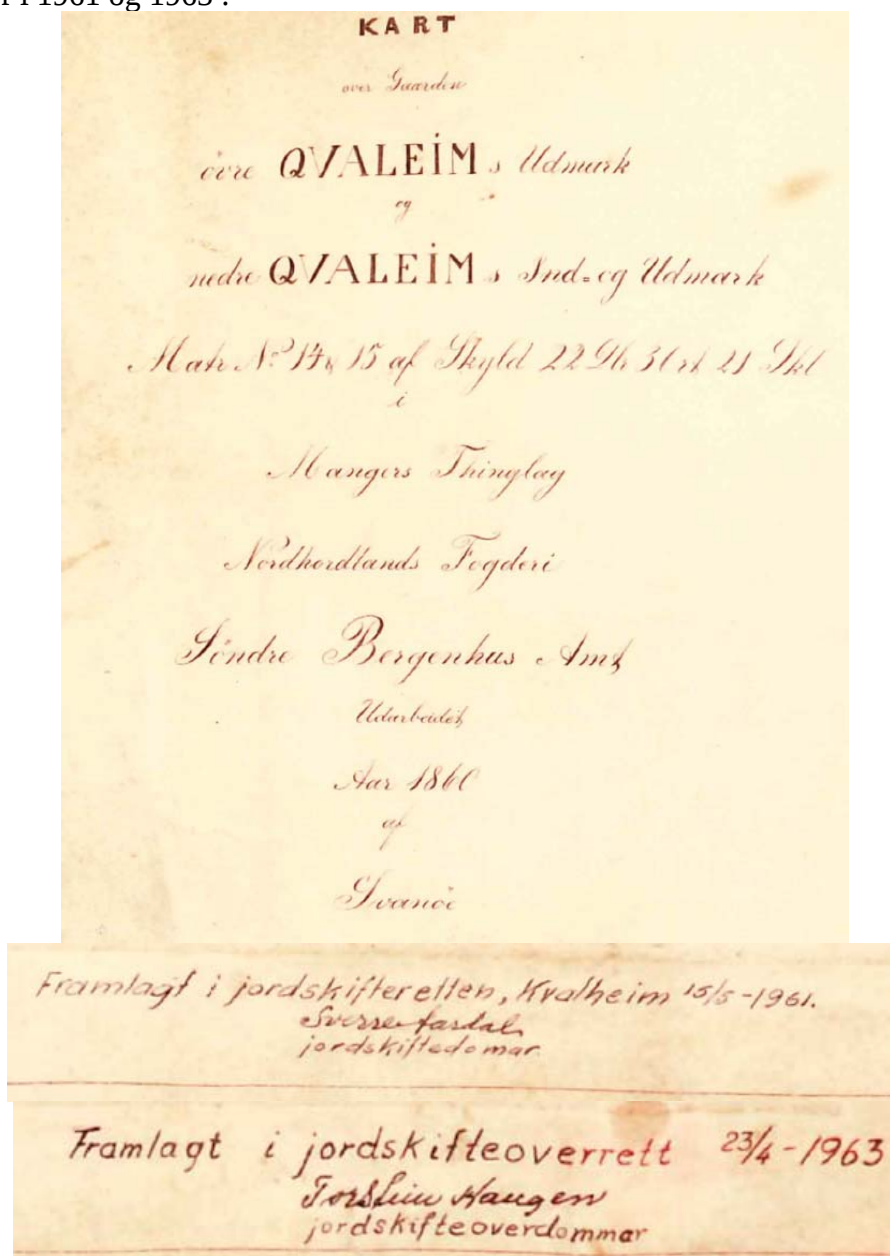 i 1961 og 1963 .
KART
over Gaarden
övre QVALEİM s Udmark
og
nedre QVALEİM s Ind= og Udmark
Matr Nº 14 & 15 af Skyld 22 Dlr 3 Ort 21 Skl
i
Mangers Thinglag
Nordhordlands Fogderi
Söndre Bergenhus Amt
Udarbeidet
Aar 1860
af
Svanöe
Framlagt i jordskifteretten, Kvalheim 15/5-1961.
Sverre
jordskiftedomar
Framlagt i jordskifteoverrett 23/4-1963
Torstein Haugen
jordskifteoverdommar